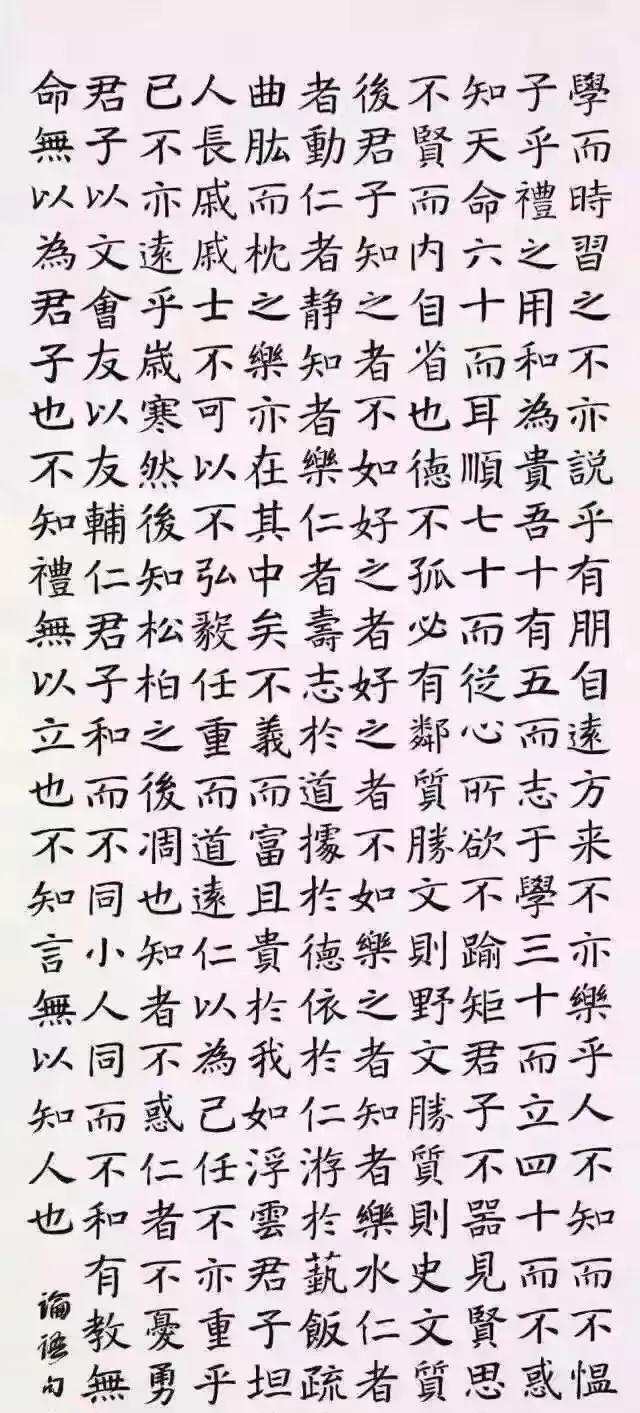 學而時習之不亦説乎有朋自遠方来不亦樂乎人不知而不愠
子乎禮之用和為貴吾十有五而志于學三十而立四十而不惑
知天命六十而耳順七十而從心所欲不踰矩君子不器見賢思
不賢而内自省也德不孤必有鄰質勝文則野文勝質則史文質
後君子知之者不如好之者好之者不如樂之者知者樂水仁者
者動仁者静知者樂仁者壽志於道據於德依於仁游於藝飯疏
曲肱而枕之樂亦在其中矣不義而富且貴於我如浮雲君子坦
人長戚戚士不可以不弘毅任重而道遠仁以為己任不亦重乎
已不亦遠乎嵗寒然後知松柏之後凋也知者不惑仁者不憂勇
君子以文會友以友輔仁君子和而不同小人同而不和有教無
命無以為君子也不知禮無以立也不知言無以知人也
論語句